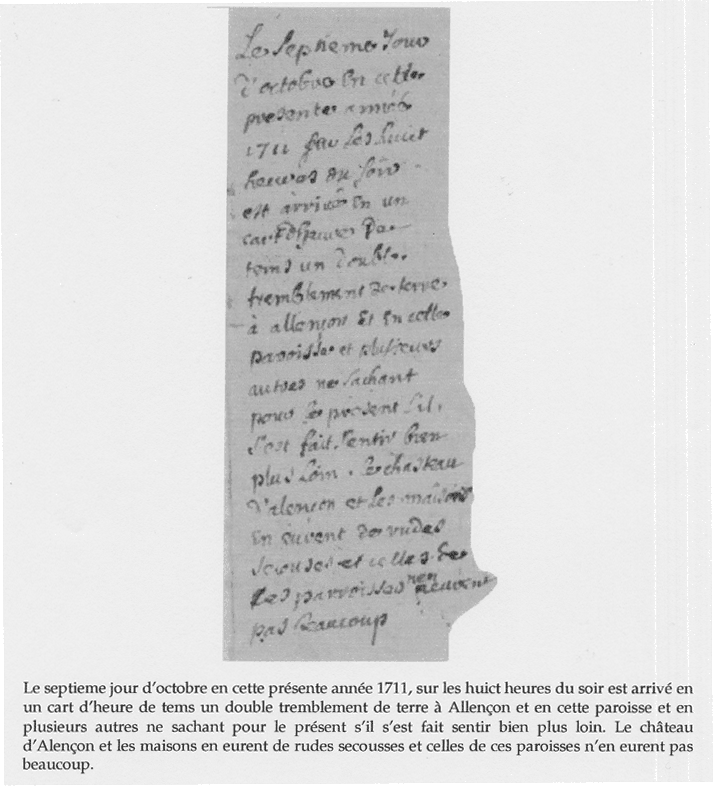 Le septieme Jour
d'octobre En cette
presente année
1711 sur les huict
heures du soir
est arrivé En un
cart d'heure de
tems un double
tremblement de terre
à allençon Et En cette
paroisse et plusieurs
autres ne sachant
pour le présent s'il
s'est fait sentir bien
plus loin. le chasteau
d'alençon et les maisons
En eurent de rudes
secouses et celles de
ces parroisses n'en eurent
pas Beaucoup
Le septieme jour d'octobre en cette présente année 1711, sur les huict heures du soir est arrivé en
un cart d'heure de tems un double tremblement de terre à Allençon et en cette paroisse et en
plusieurs autres ne sachant pour le présent s'il s'est fait sentir bien plus loin. Le château
d'Alençon et les maisons en eurent de rudes secousses et celles de ces paroisses n'en eurent pas
beaucoup.